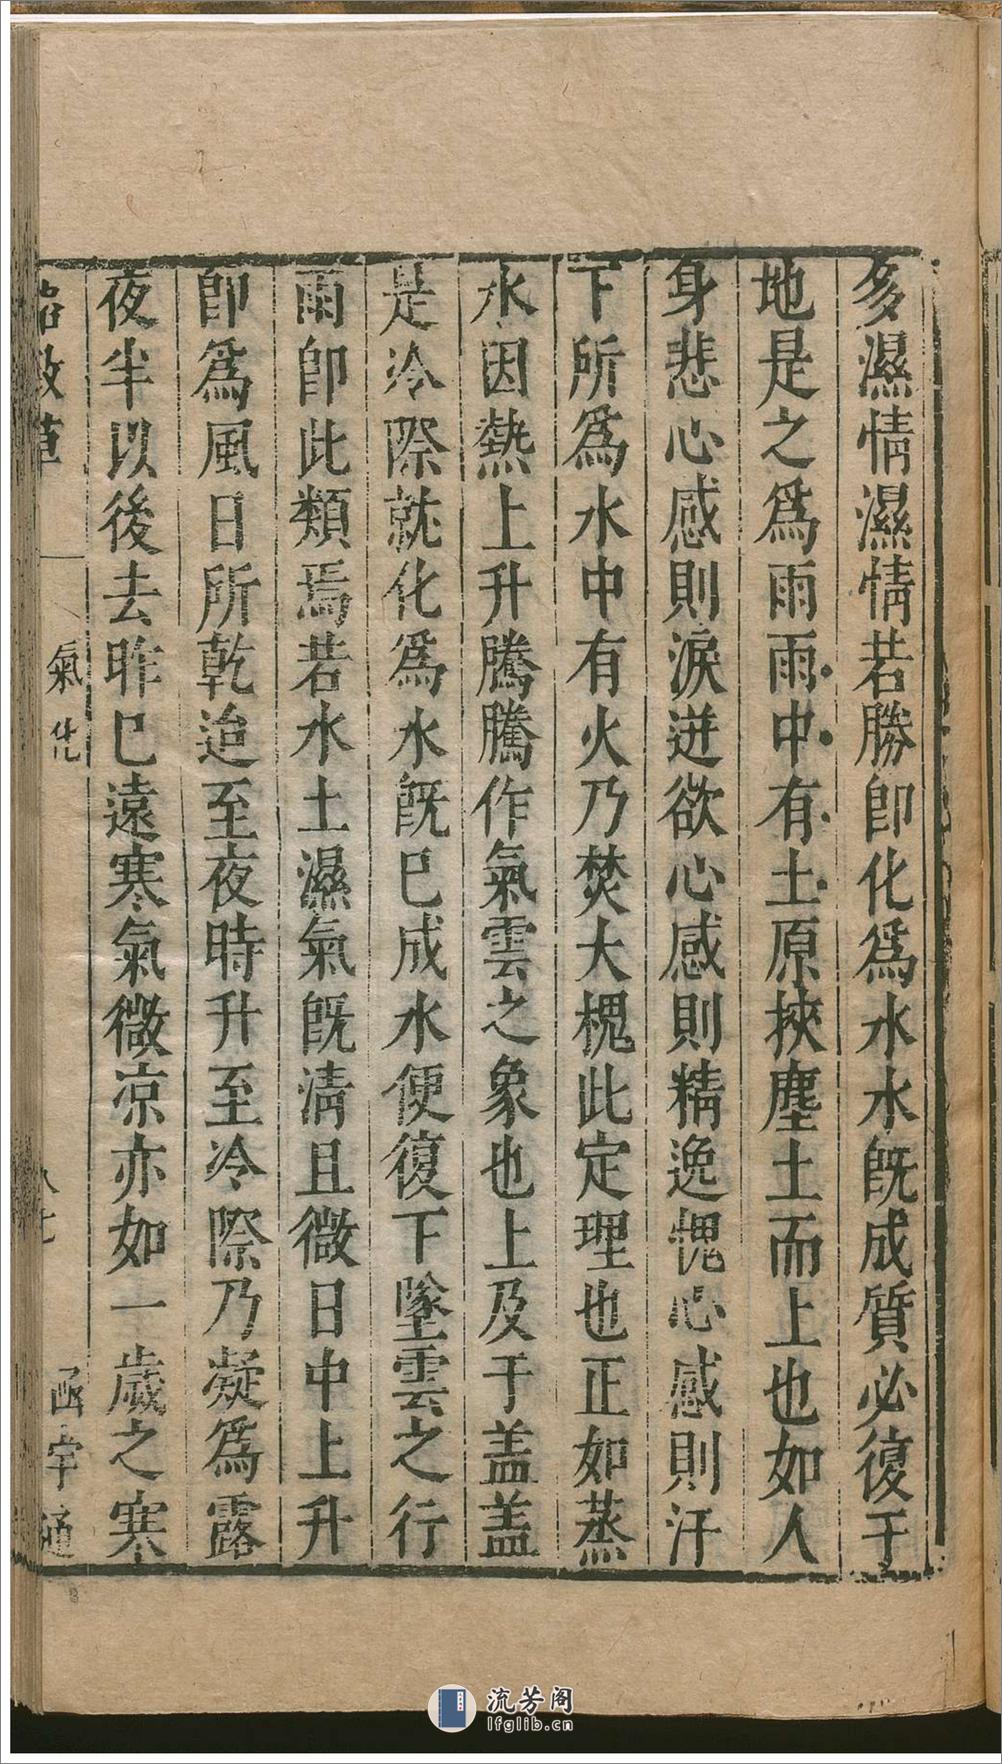 多濕情濕情若勝卽化爲水水旣成質必復于
地是之爲雨雨中有土原挾塵土而上也如人
身悲心感則淚迸欲心感則精逸愧心感則汗
下所爲水中有火乃焚大槐此定理也正如蒸
水因熱上升騰騰作氣雲之象也上及于盖盖
是冷際就化爲水旣已成水便復下墜雲之行
雨卽此類焉若水土濕氣旣淸且微日中上升
卽爲風日所乾迨至夜時升至冷際乃凝爲露
夜半以後去昨已遠寒氣微凉亦如一歲之寒
格致草 氣化 八七 函宇通
流芳阁
lfglib.cn